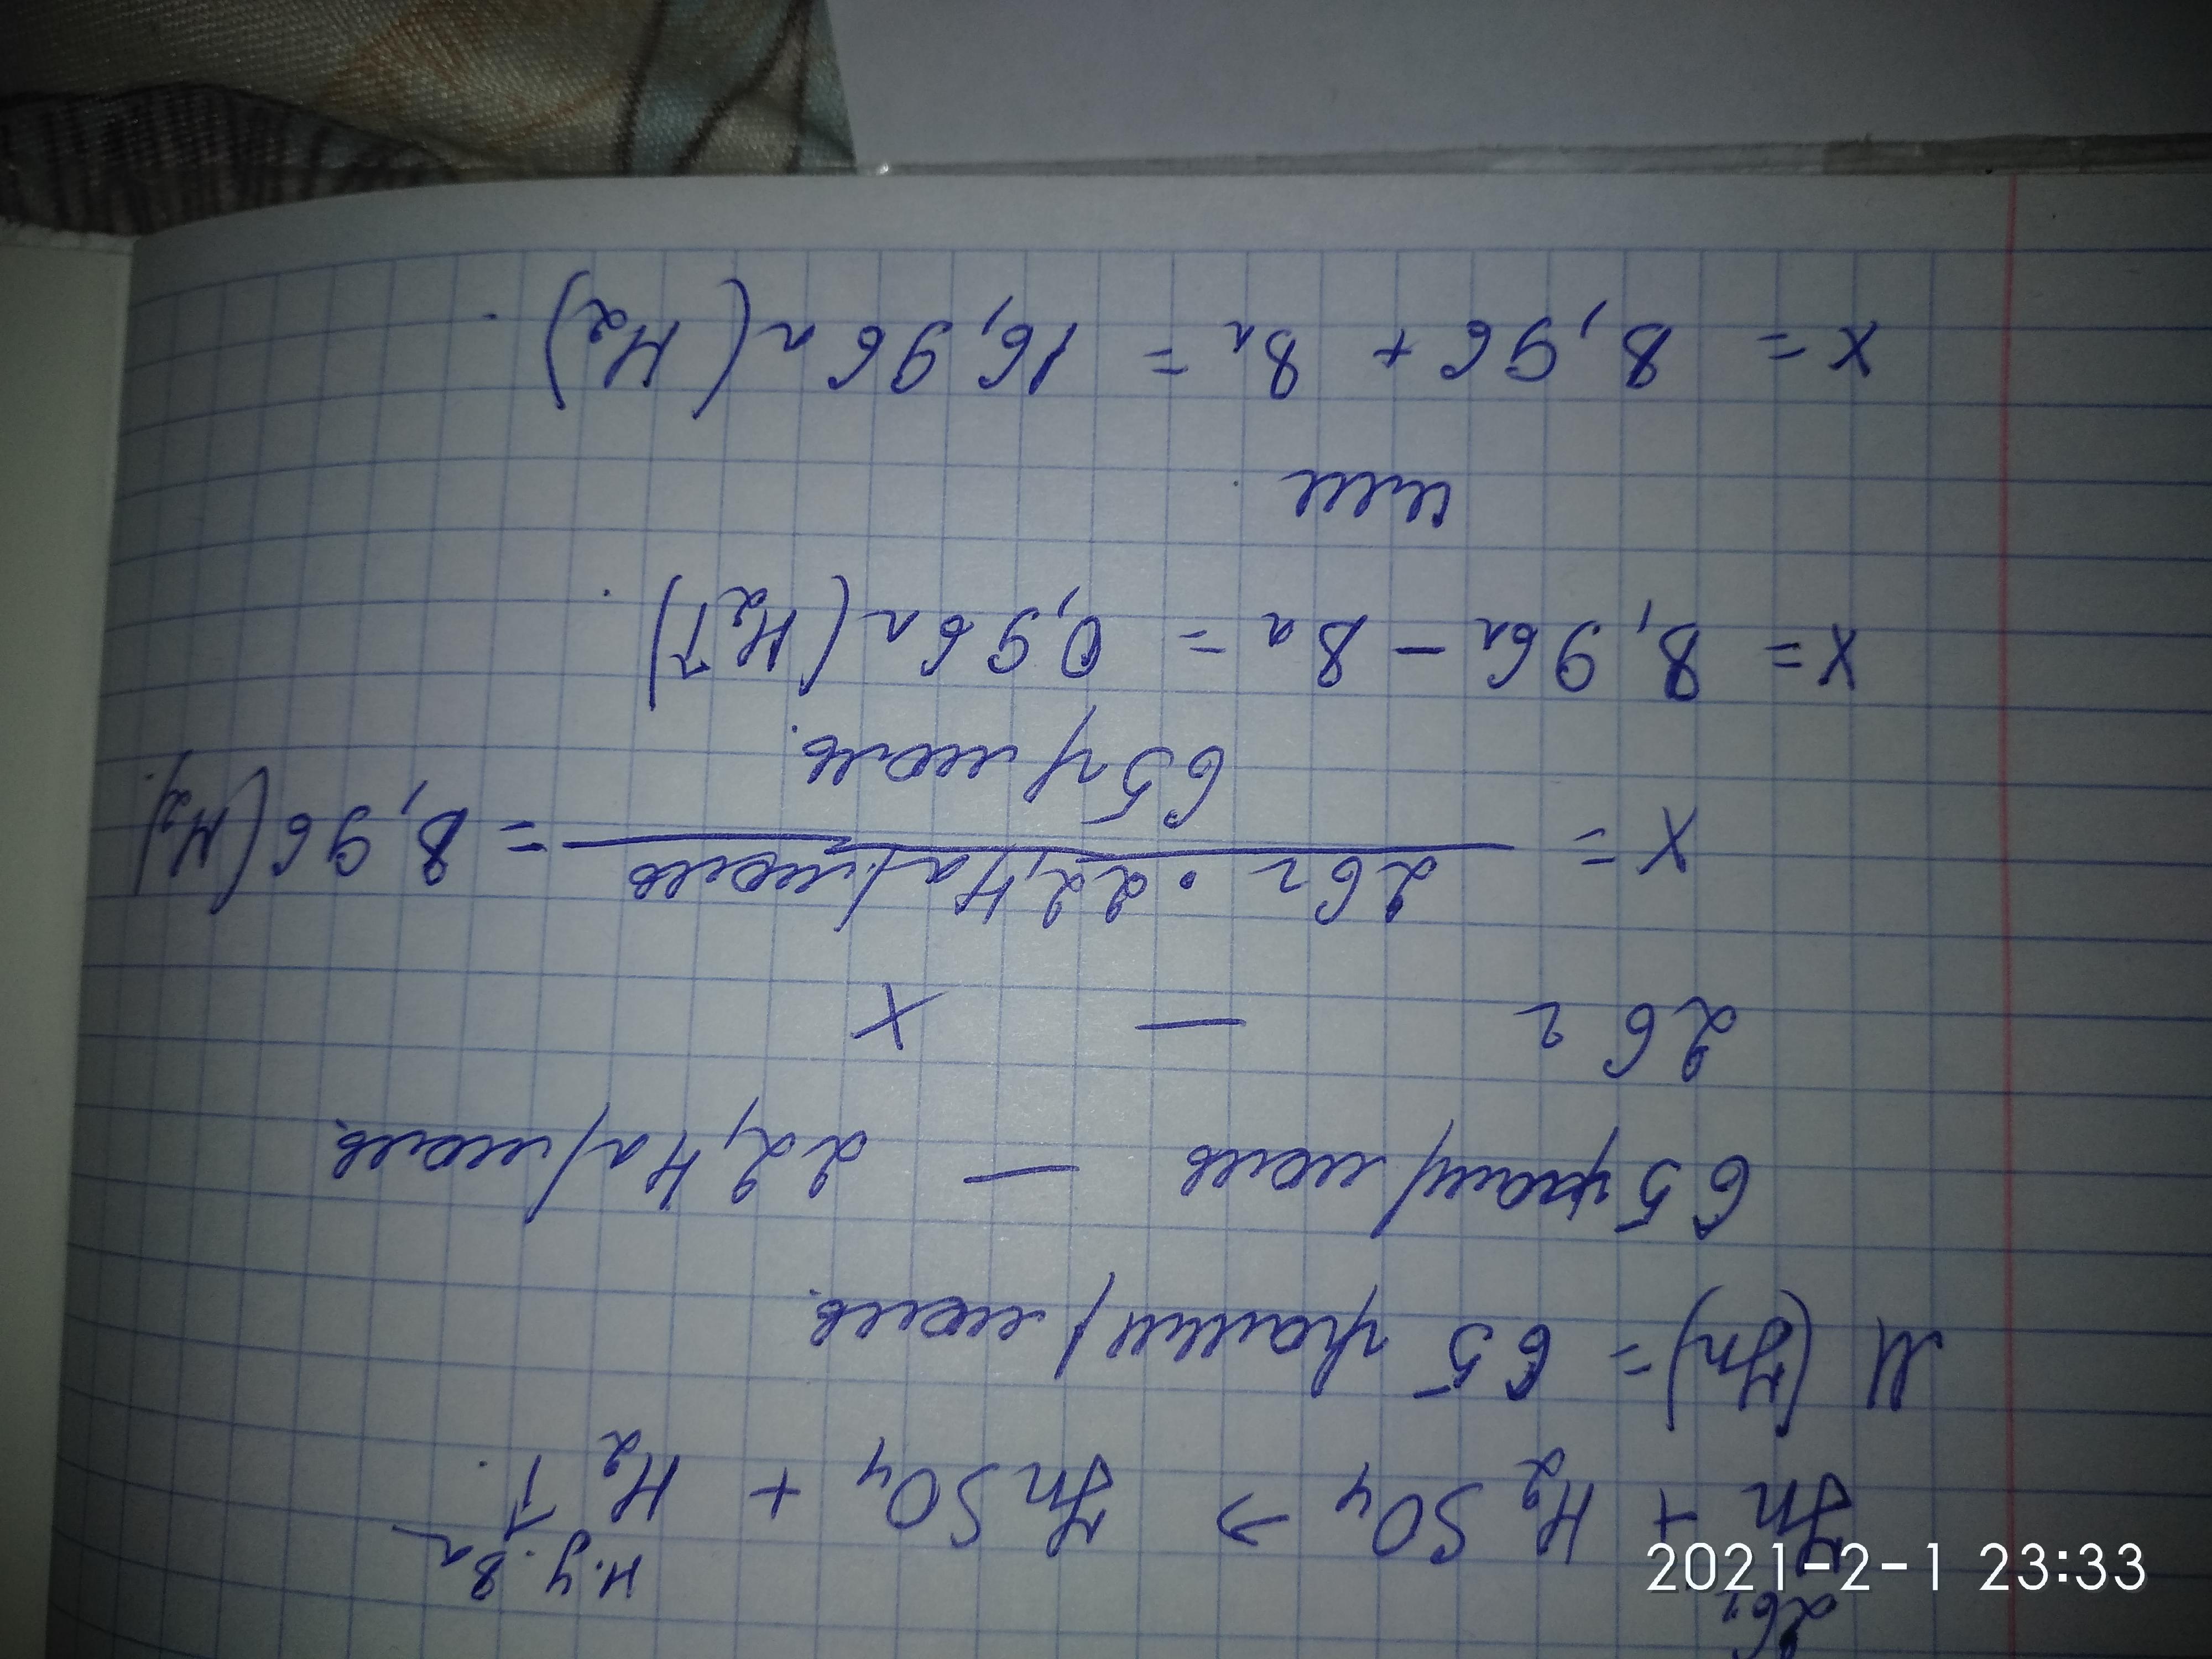 26г н.у. 8л
Zn + H2SO4 → ZnSO4 + H2↑.
M (Zn) = 65 грамм/моль.
65 грамм/моль — 22,4 л/моль.
26 г — x
x = 26г · 22,4 л/моль / 65 г/моль. = 8,96 (H2).
x = 8,96л – 8л = 0,96л (H2↑).
или
x = 8,96 + 8л = 16,96л (H2).
2021-2-1 23:33